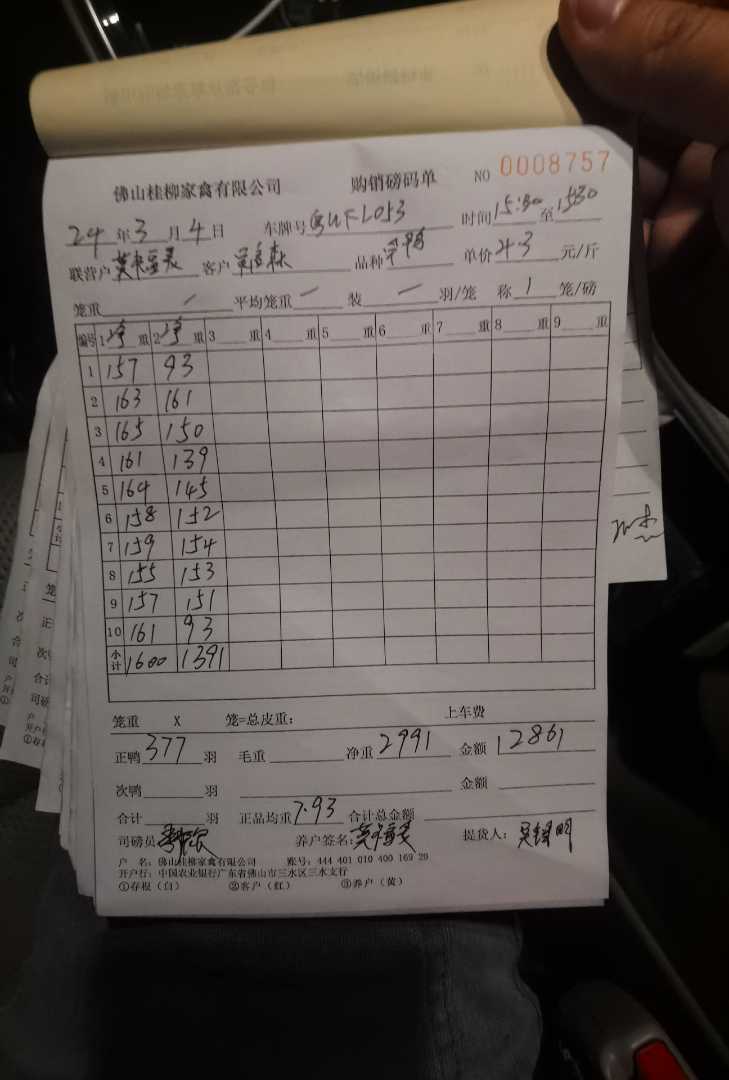 佛山桂柳家禽有限公司 购销磅码单 NO 0008757
24年3月4日 车牌号 L053 时间15:30至1530
联营户 客户 品种 单价4.3元/斤
笼重 — 平均笼重 — 装 — 羽/笼 称1笼/磅
编号 1净重 2净重 3 重 4 重 5 重 6 重 7 重 8 重 9 重
1 157 93
2 163 161
3 165 150
4 161 139
5 164 145
6 158 152
7 159 154
8 155 153
9 157 151
10 161 93
小计 1600 1391
笼重 X 笼=总皮重: 上车费
正鸭377羽 毛重 净重2991 金额12861
次鸭 羽 金额
合计 羽 正品均重7.93 合计总金额
司磅员 养户签名: 提货人:
户 名:佛山桂柳家禽有限公司 账号:444 401 010 400 169 20
开户行:中国农业银行广东省佛山市三水区三水支行
①存根(白) ②客户(红) ③养户(黄)